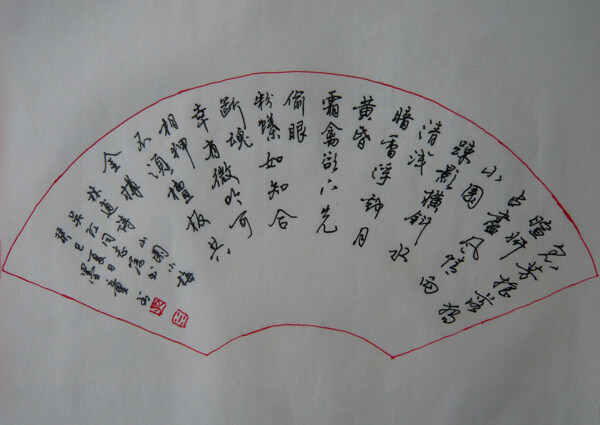 众芳摇落獨
暄妍
占盡風情向
小園
疎影橫斜水
清淺
暗香浮動月
黄昏
霜禽欲下先
偷眼
粉蝶如知合
斷魂
幸有微吟可
相狎
不須檀板共
金樽
林逋詩山園小梅
吴江同志属书
癸巳夏日